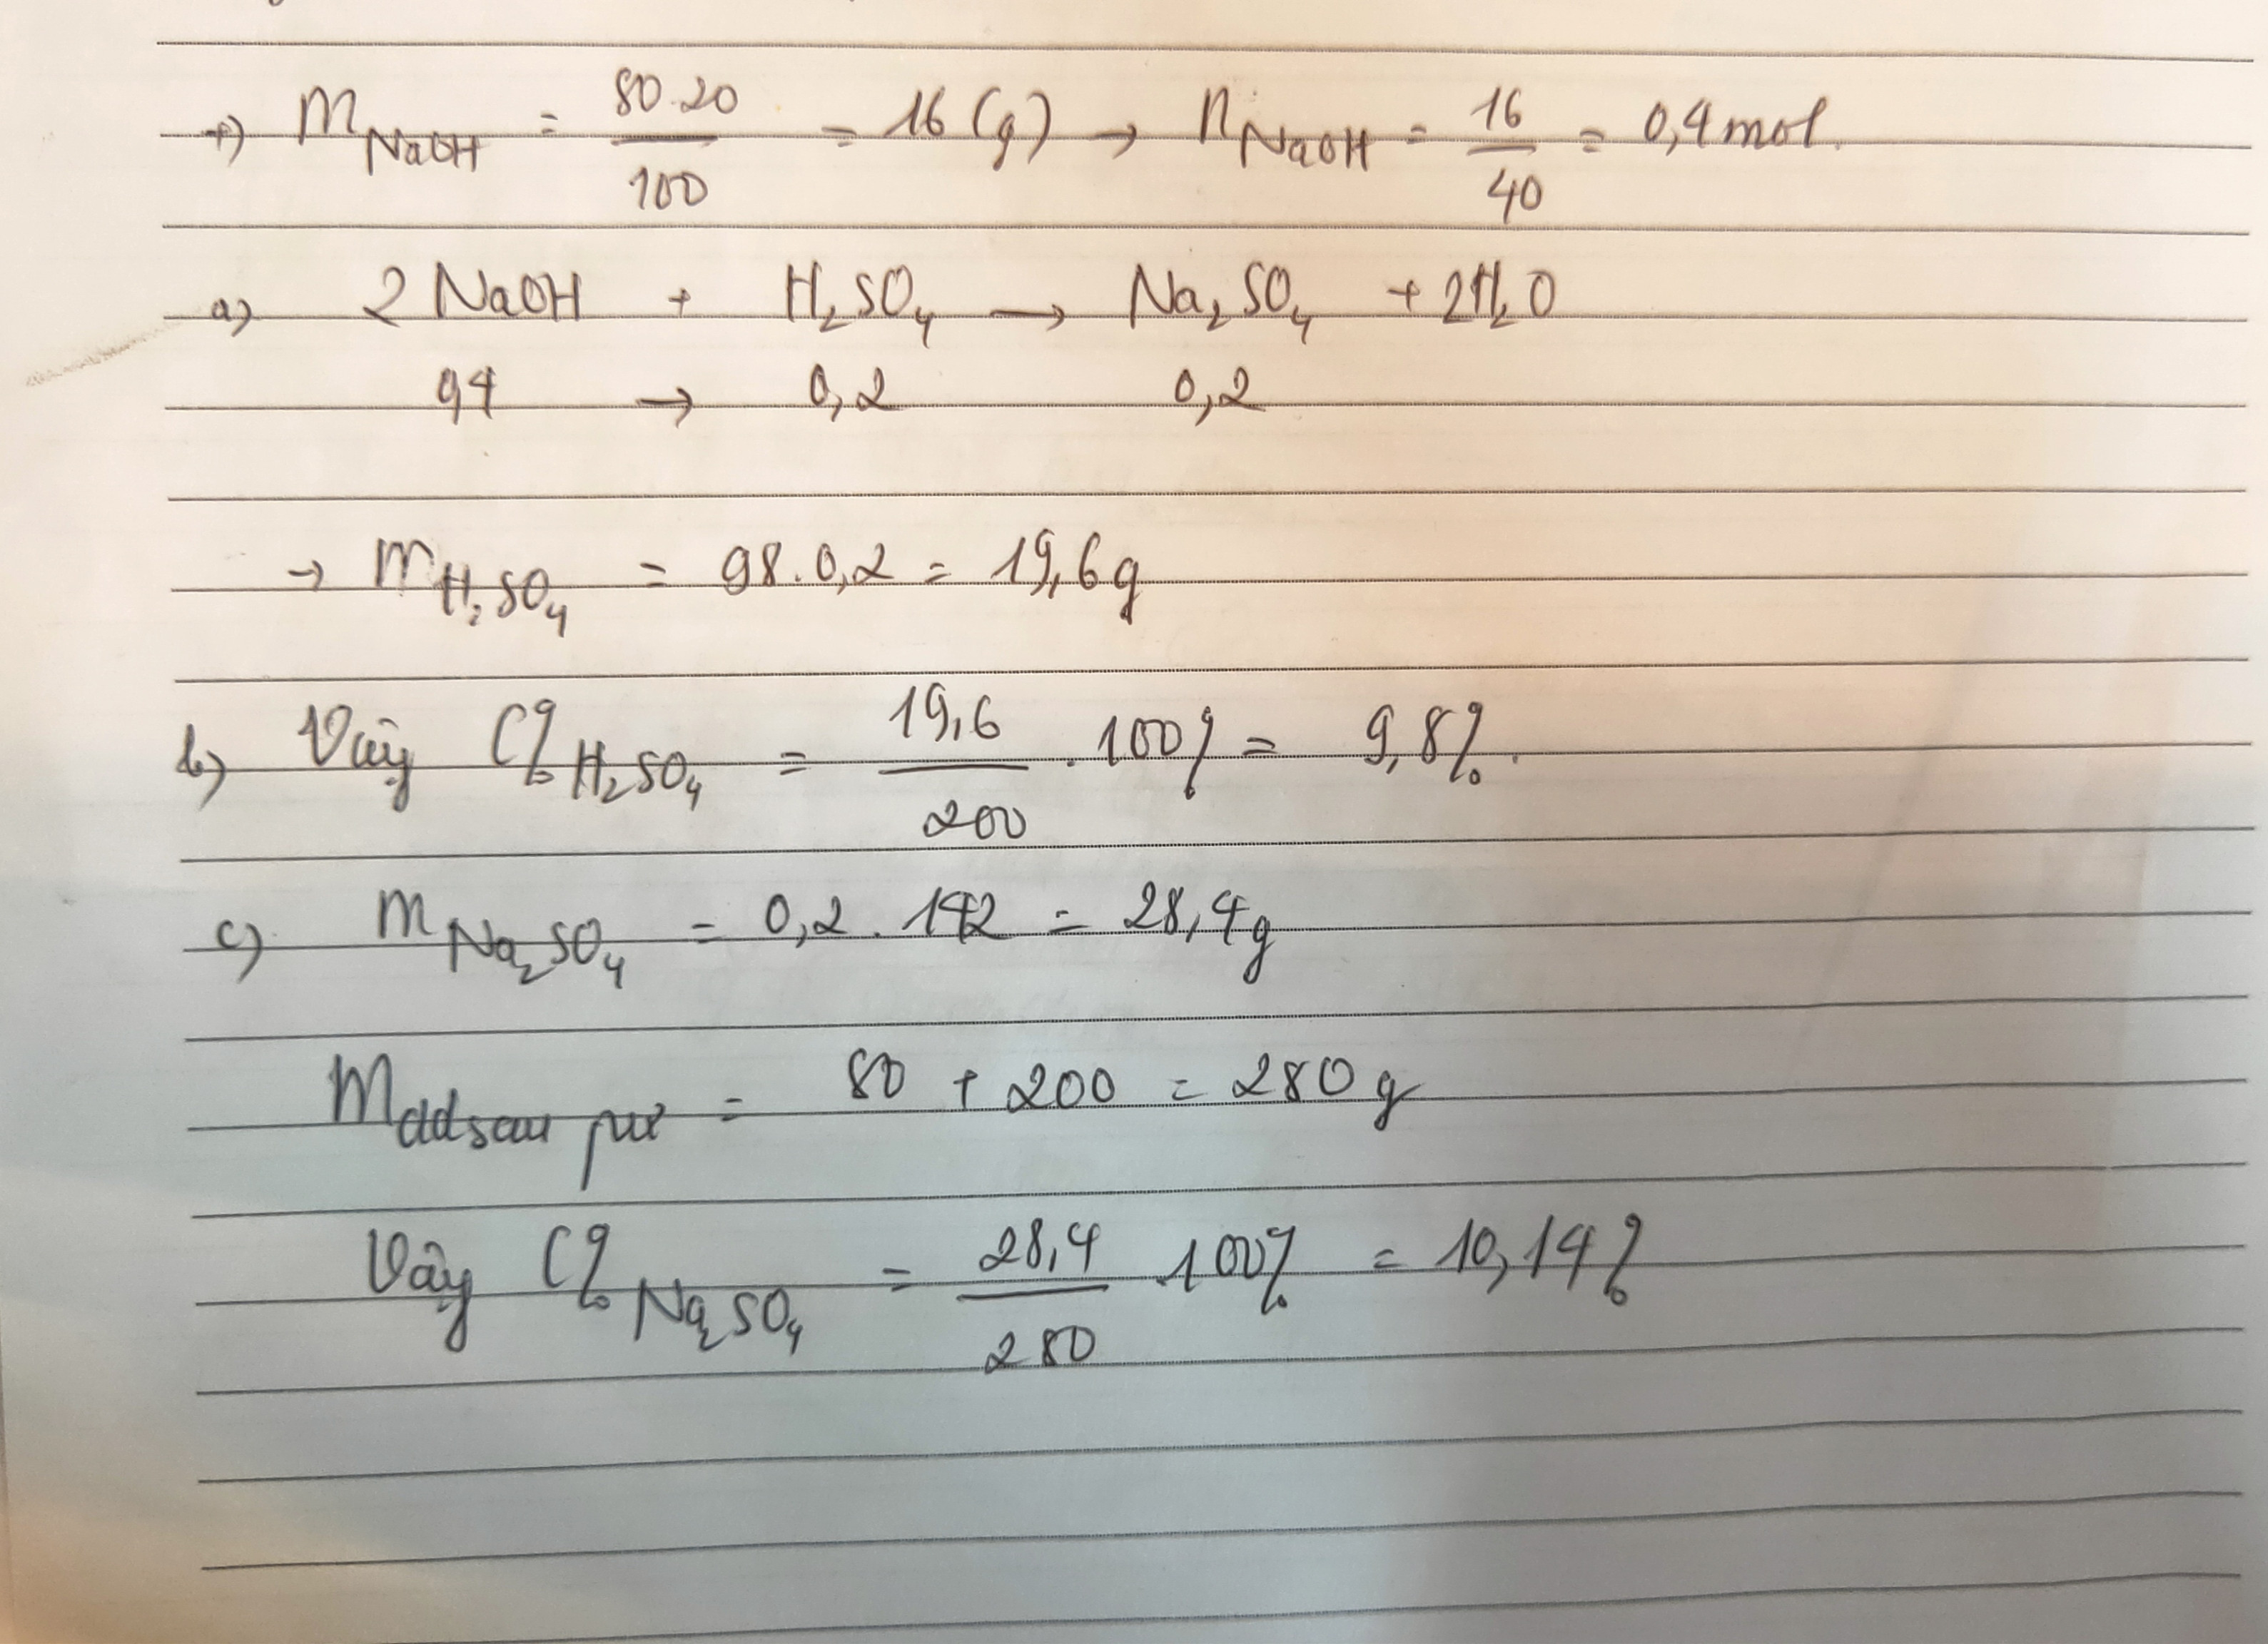 +) m NaOH = 80.20 / 100 = 16 (g) → n NaOH = 16 / 40 = 0,4 mol.
a) 2 NaOH + H₂SO₄ → Na₂SO₄ + 2H₂O
0,4 → 0,2 0,2
→ m H₂SO₄ = 98.0,2 = 19,6 g
b) Vậy C% H₂SO₄ = 19,6 / 200 . 100% = 9,8%.
c) m Na₂SO₄ = 0,2 . 142 = 28,4 g
m dd sau pư = 80 + 200 = 280 g
Vậy C% Na₂SO₄ = 28,4 / 280 . 100% = 10,14%